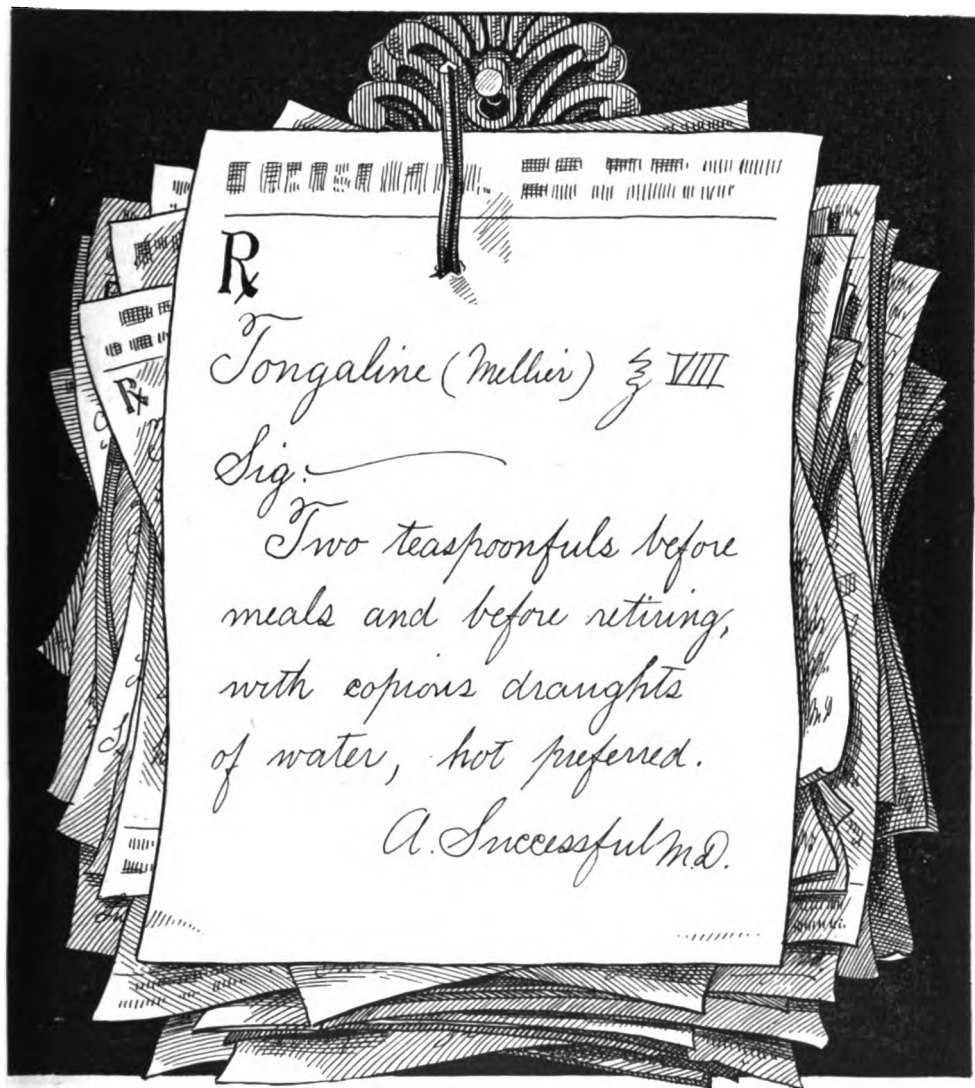 ℞
Tongaline (Mellier) ℥ VIII
Sig:
Two teaspoonfuls before
meals and before retiring,
with copious draughts
of water, hot preferred.
A. Successful M.D.
℞